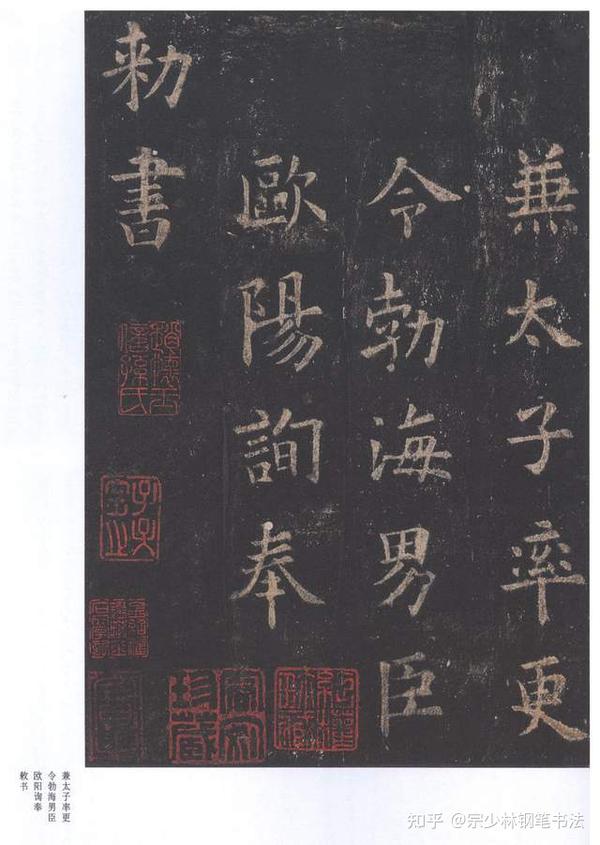 兼太子率更
令勃海男臣
歐陽詢奉
勑書
兼太子率更
令勃海男臣
欧阳询奉
敕书
知乎 @宗少林钢笔书法